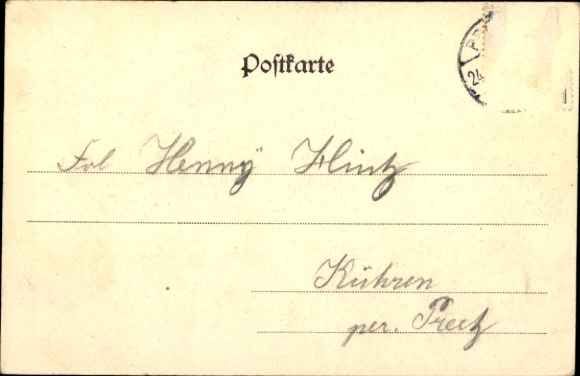 Postkarte
24
Frl Henny Hintz
Kühren
per. Preetz